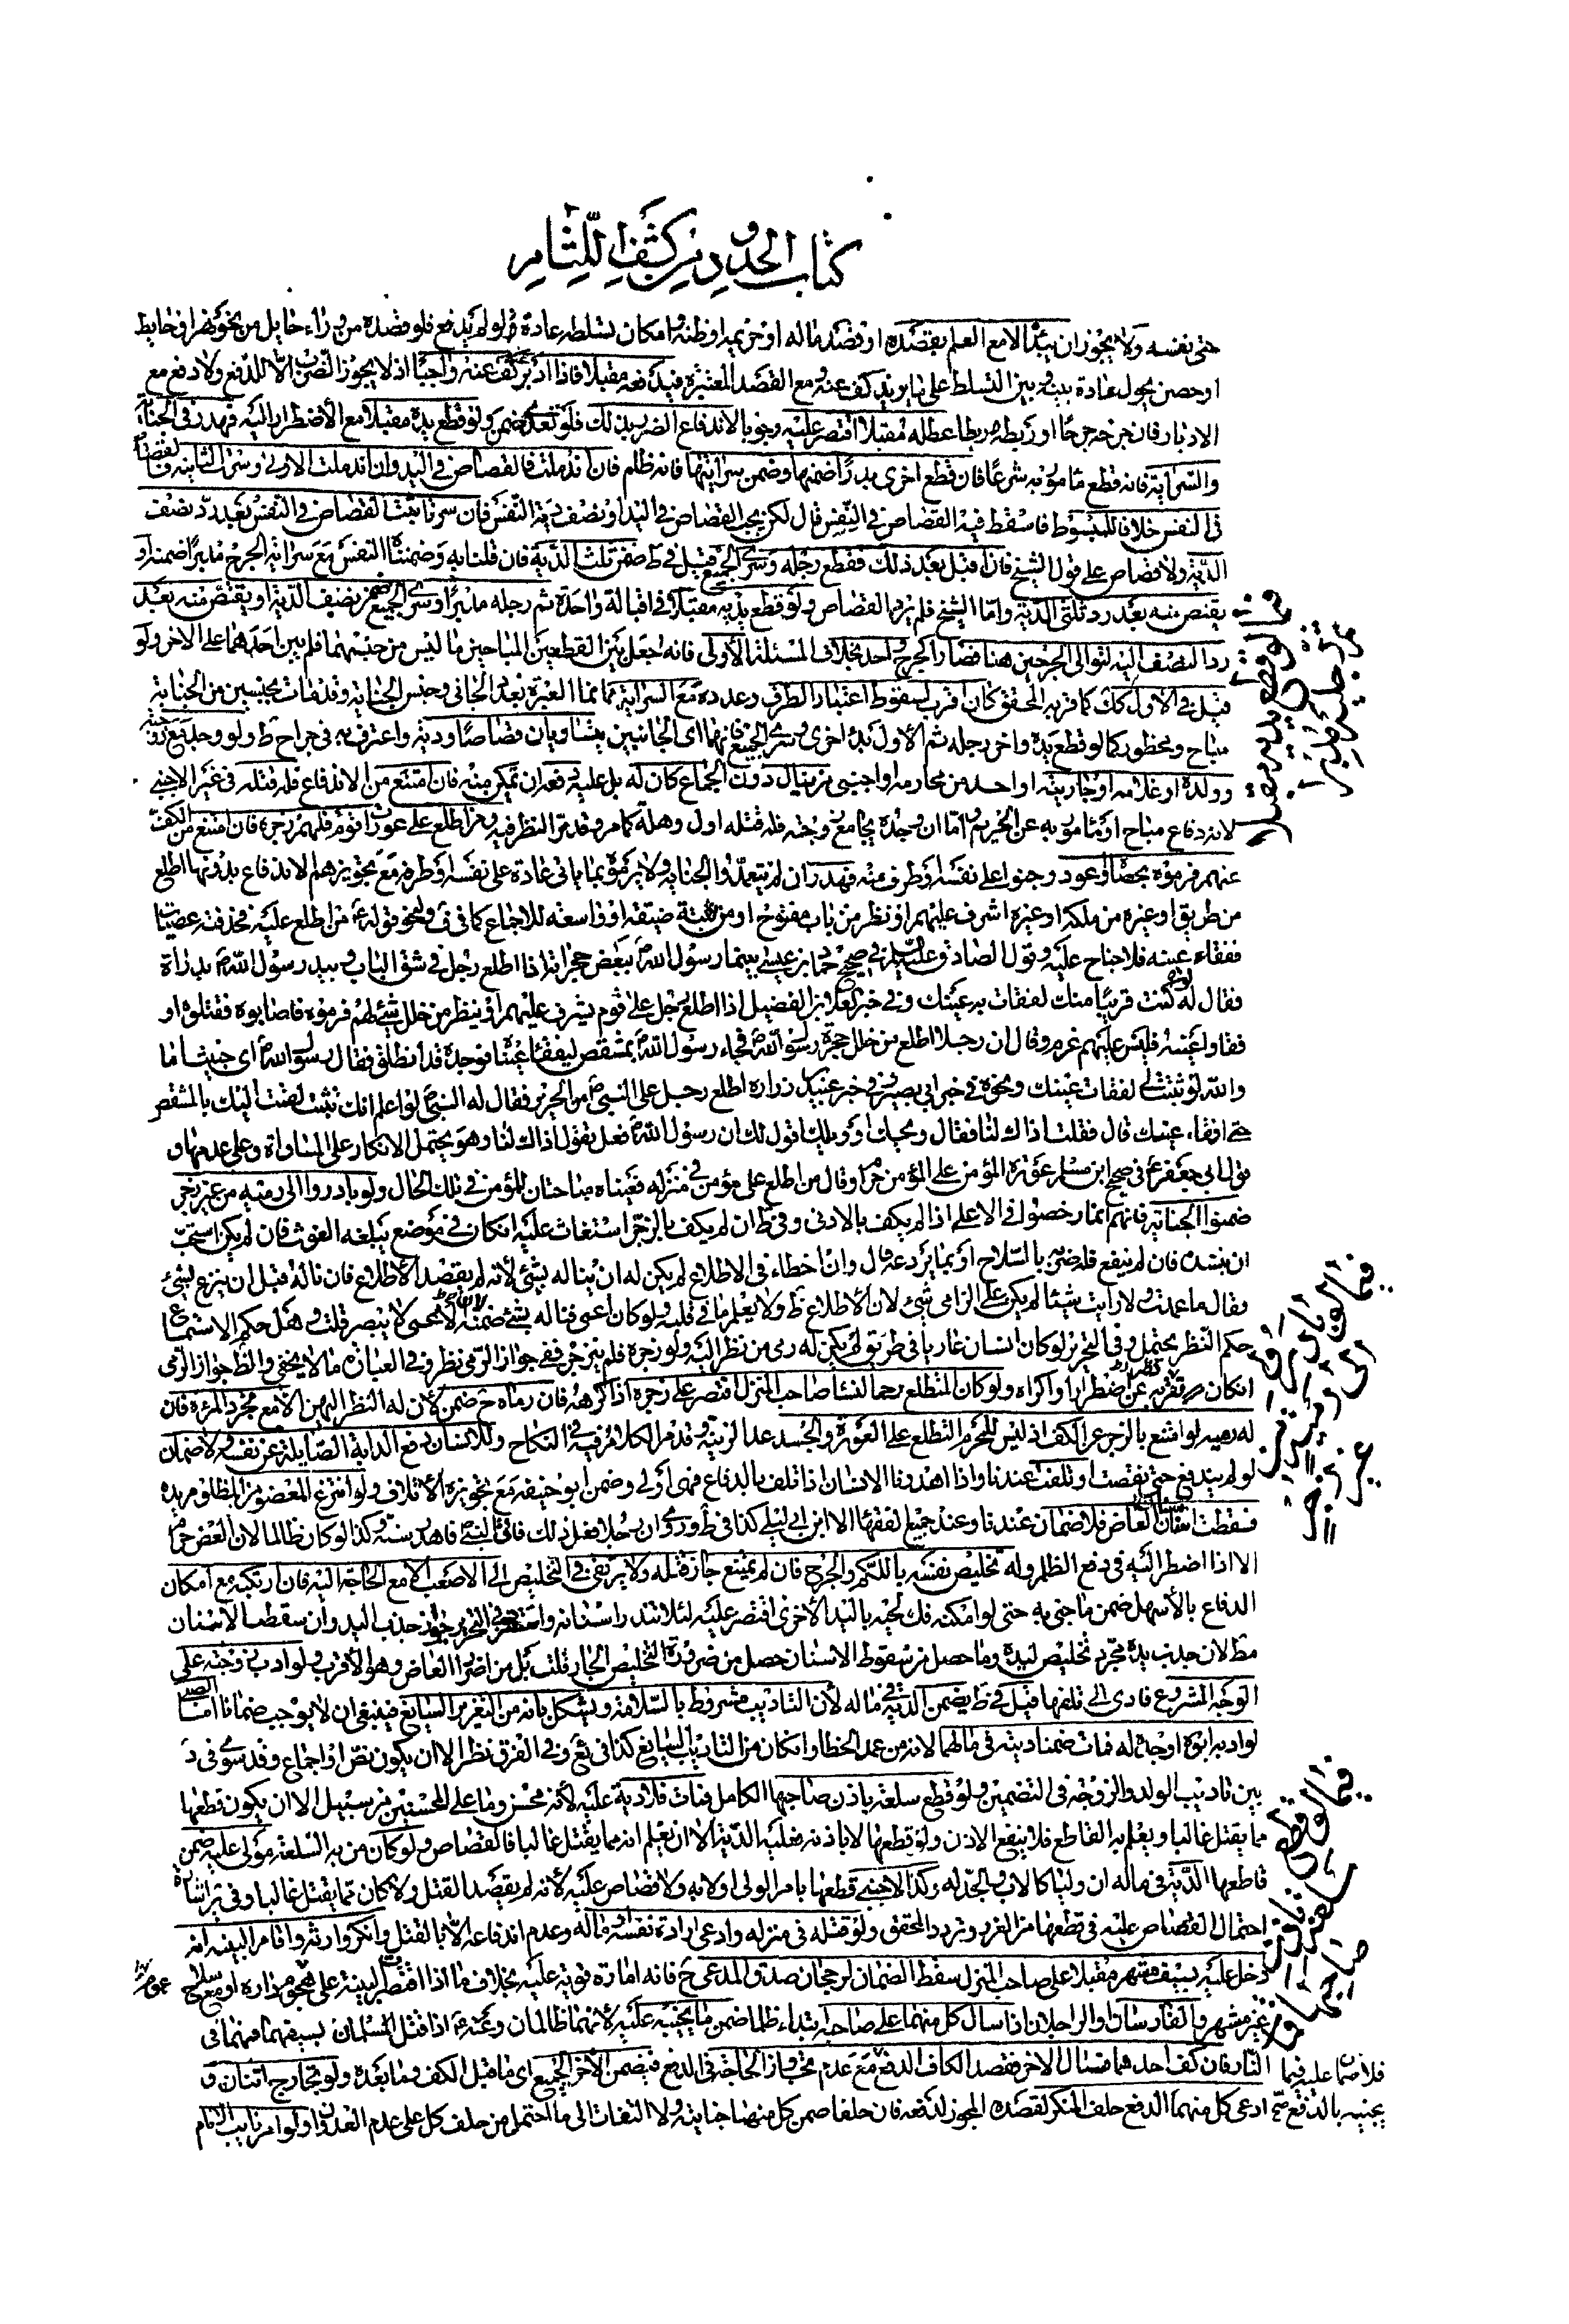 كتاب الحدود من كشف اللثام
حتى نفسه ولا يجوز ان يبدأ الا مع العلم بقصده او قصد ماله او حريمه او ظنه وامكان تسلطه عادة ولو لم يدفع فلو قصده من وراء حايل من نحو نهر او حايط
او حصن يحول عادة بينه وبين التسلط على ما يريد كف عنه ومع القصد المعتبر فيدفعه مقبلا فاذا ادبر كف عنه واجبا اذ لا يجوز الضرب الا للدفع ولا دفع مع
الادبار فان جرحه جرحا او ربطه ربطا عطله مقبلا اقتصر عليه وجوبا لاندفاع الضرر بذلك فلو تعدى ضمن ولو قطع يده مقبلا مع الاضطرار اليه فهدر في الجناية
والسراية فانه قطع مأمور به شرعا فان قطع اخرى مدبرا ضمنها وضمن سرايتها فانه ظالم فان اندملت فالقصاص في اليد وان اندملت الاولى وسرت الثانية فالقصاص
في النفس خلافا للمبسوط فاسقط فيه القصاص في النفس قال لكن يجب القصاص في اليد او نصف دية النفس فان سرتا ثبت القصاص في النفس بعد رد نصف
الدية ولا قصاص على قول الشيخ فان اقبل بعد ذلك فقطع رجله وسرى الجميع قيل في ط ضمن ثلث الدية فان قلنا به وضمنا النفس مع سراية الجرح مدبرا ضمنه او
يقتص منه بعد رد ثلثي الدية واما الشيخ فلم ير فيها القصاص ولو قطع يديه مقبلا في اقبالة واحدة ثم رجله مدبرا وسرى الجميع ضمن نصف الدية او يقتص منه بعد
رد النصف اليه لتوالى الجرحين هنا فصارا كجرح واحد بخلاف المسئلة الاولى فانه جعل بين القطعين المباحين ما ليس من جنسهما فلم يبن احدهما على الاخر ولو
قيل في الاول كك كما قربه المحقق كان اقرب لسقوط اعتبار الطرف وعدده مع السراية وانما العبرة بعدد الجاني وجنس الجناية وقد مات بجنسين من الجناية
مباح ومحظور كما لو قطع يده واخر رجله ثم الاول يده اخرى وسرى الجميع فانهما اى الجانيين يتساويان قصاصا ودية واعترف به في جراح ط ولو وجد مع زوجته
وولده او غلامه او جاريته او احد من محارمه او اجنبي من ينال دون الجماع كان له بل عليه دفعه ان تمكن منه فان امتنع من الاندفاع فله قتله في غير الاجنبي
لانه دفاع مباح او مأمور به عن الحريم واما ان وجده يجامع زوجته فله قتله اول وهلة كما مر وقد مر النظر فيه ومن اطلع على عورات قوم فلهم زجره فان امتنع من الكف
عنهم فرموه بحصاة او عود وجنوا على نفسه او طرف منه فهدر ان لم يتعمدوا الجناية ولا يرموه بما ياتي عادة على نفسه او طرفه مع تجويزهم الاندفاع بدونها اطلع
من طريق او غيره من ملكه او غيره اشرف عليهم او نظر من باب مفتوح او من ثقبة ضيقة او واسعة للاجماع كما في ف ولنحو قوله ع من اطلع عليه فحذفته بحصاة
ففقاء عينه فلا جناح عليه وقول الصادق عليه السلام في صحيح حماد بن عيسى بينما رسول الله ص ببعض حجراته اذا اطلع رجل في شق الباب وبيد رسول الله ص مدراة
فقال له لو كنت قريبا منك لفقات به عينك وفي خبر العلا بن الفضيل اذا اطلع رجل على قوم يشرف عليهم او ينظر من خلل شئ لهم فرموه فاصابوه فقتلوه او
فقاوا عينه فليس عليهم غرم وقال ان رجلا اطلع من خلل حجرة رسول الله ص فجاء رسول الله ص بمشقص ليفقأ عينه فوجده قد انطلق فقال رسول الله ص اى خبيث اما
والله لو ثبت لى لفقات عينك ونحوه في خبر ابى بصير وفي خبر عبيد بن زرارة اطلع رجل على النبي ص من الجريد فقال له النبي ص لو اعلم انك تثبت لقمت اليك بالمشقص
حتى افقاء عينك قال فقلت اذاك لنا فقال ويحك او ويلك اقول لك ان رسول الله ص فعل تقول اذاك لنا وهو يحتمل الانكار على المساواة وعلى عدمها و
قول ابى جعفر ع في صحيح ابن مسلم عورة المؤمن على المؤمن حرام وقال من اطلع على مؤمن في منزله فعيناه مباحتان للمؤمن في تلك الحال ولو بادروا الى رميه من غير زجر
ضمنوا الجناية فانهم انما رخصوا في الاعلى اذا لم يكف بالادنى وفي ط ان لم يكف بالزجر استغاث عليه ان كان في موضع يبلغه الغوث فان لم يكن استحب
ان ينشده فان لم ينفع فله ضربه بالسلاح او بما يردعه قال وان اخطاء في الاطلاع لم يكن له ان يناله بشئ لانه لم يقصد الاطلاع فان ناله قبل ان ينزع بشئ
فقال ما عمدت ولا رايت شيئا لم يكن على الرامى شئ لان الاطلاع ظ ولا يعلم ما في قلبه ولو كان اعمى فناله بشئ ضمنه لان الاعمى لا يبصر قلت وهل حكم الاستماع
حكم النظر يحتمل وفي التحرير لو كان انسان عاريا في طريق لم يكن له رمى من نظر اليه ولو زجره فلم ينزجر ففي جواز الرمى نظر وفي العبارة ما لا يخفى والظ جواز الرمى
ان كان تعريه عن اضطرار او اكراه ولو كان المتطلع رحما لنساء صاحب المنزل اقتصر على زجره اذا كرهه فان رماه ح ضمن لان له النظر اليهن الا مع تجرد المرئة فان
له رميه لو امتنع بالزجر عن الكف اذ ليس للمحرم التطلع على العورة والجسد عدا الزينة وقد مر الكلام فيه في النكاح وللانسان دفع الدابة الصايلة عن نفسه ولا ضمان
لو لم يندفع حتى نقصت او تلفت عندنا واذا اهدرنا الانسان اذا تلف بالدفاع فهى اولى وضمن ابو حنيفة مع تجويزه الاتلاف ولو انتزع المعضوض المظلوم يده
فسقطت اسنان العاض فلا ضمان عندنا وعند جميع الفقهاء الا ابن ابى ليلى كذا في ط وروى ان رجلا فعل ذلك فاتى النبي ص فاهدر سنه وكذا لو كان ظالما لان العض حرام
الا اذا اضطر اليه في دفع الظلم وله تخليص نفسه باللكم والجرح فان لم يمتنع جاز قتله ولا يرتقى في التخليص الى الاصعب الا مع الحاجة اليه فان ارتكبه مع امكان
الدفاع بالاسهل ضمن ما جنى به حتى لو امكنه فك لحييه باليد الاخرى اقتصر عليه لئلا تندر اسنانه واستقرب في التحرير جواز جذب اليد وان سقطت الاسنان
مط لان جذب يده مجرد تخليص ليده وما حصل من سقوط الاسنان حصل من ضرورة التخليص الجايز قلت بل من اضرار العاض وهو الاقرب ولو ادب زوجته على
الوجه المشروع فادى الى تلفها قيل في ط يضمن الدية في ماله لان التاديب مشروط بالسلامة ويشكل بانه من التعزير السايغ فينبغى ان لا يوجب ضمانا اما الصبى
لو ادبه ابوه او جده له فمات ضمنا ديته في مالهما لانه من عمد الخطا وان كان من التاديب السايغ كذا في يع وفي الفرق نظر الا ان يكون نص او اجماع وقد سوى في د
بين تاديب الولد والزوجة في التضمين ولو قطع سلعة باذن صاحبها الكامل فمات فلا دية عليه لانه محسن وما على المحسنين من سبيل الا ان يكون قطعها
مما يقتل غالبا ويعلم به القاطع فلا ينفع الاذن ولو قطعها لا باذنه فعليه الدية الا ان يعلم انه مما يقتل غالبا فالقصاص ولو كان من به السلعة مولى عليه ضمن
قاطعها الدية في ماله ان وليا كالاب والجد له وكذا الاجنبي قطعها بامر الولى او لا به ولا قصاص عليه لانه لم يقصد القتل ولا كان مما يقتل غالبا وفي ير اشارة
احتمال القصاص عليه في قطعها من الغرر وتردد المحقق ولو قتله في منزله وادعى ارادة نفسه او ماله وعدم اندفاعه الا بالقتل وانكر وارثه واقام البينة انه
دخل عليه بسيف مشهر مقبلا على صاحب المنزل سقط الضمان لرجحان صدق المدعى ح فانه امارة قوية عليه بخلاف ما اذا اقتصر البينة على هجومه داره او مع سلاح
غير مشهر والفارسان او الراجلان اذا سال كل منهما على صاحبه ابتداء ظلما ضمن ما يجنيه عليه لانهما ظالمان وعنه ع اذا قتل المسلمان بسيفهما فهما في
النار فان كف احدهما فسال الاخر فقصد الكاف الدفع مع عدم تجاوز الحاجة في الدفع فيضمن الاخر الجميع اى ما قبل الكف وما بعده ولو تجارح اثنان و
ادعى كل منهما الدفع حلف المنكر لقصده المجوز لدفعه فان حلفا ضمن كل منهما جنايته ولا التفات الى ما احتمل من حلف كل على عدم العدوان ولو امر نايب الامام
فلا ضمان عليه فيما
يجنيه بالدفع صح